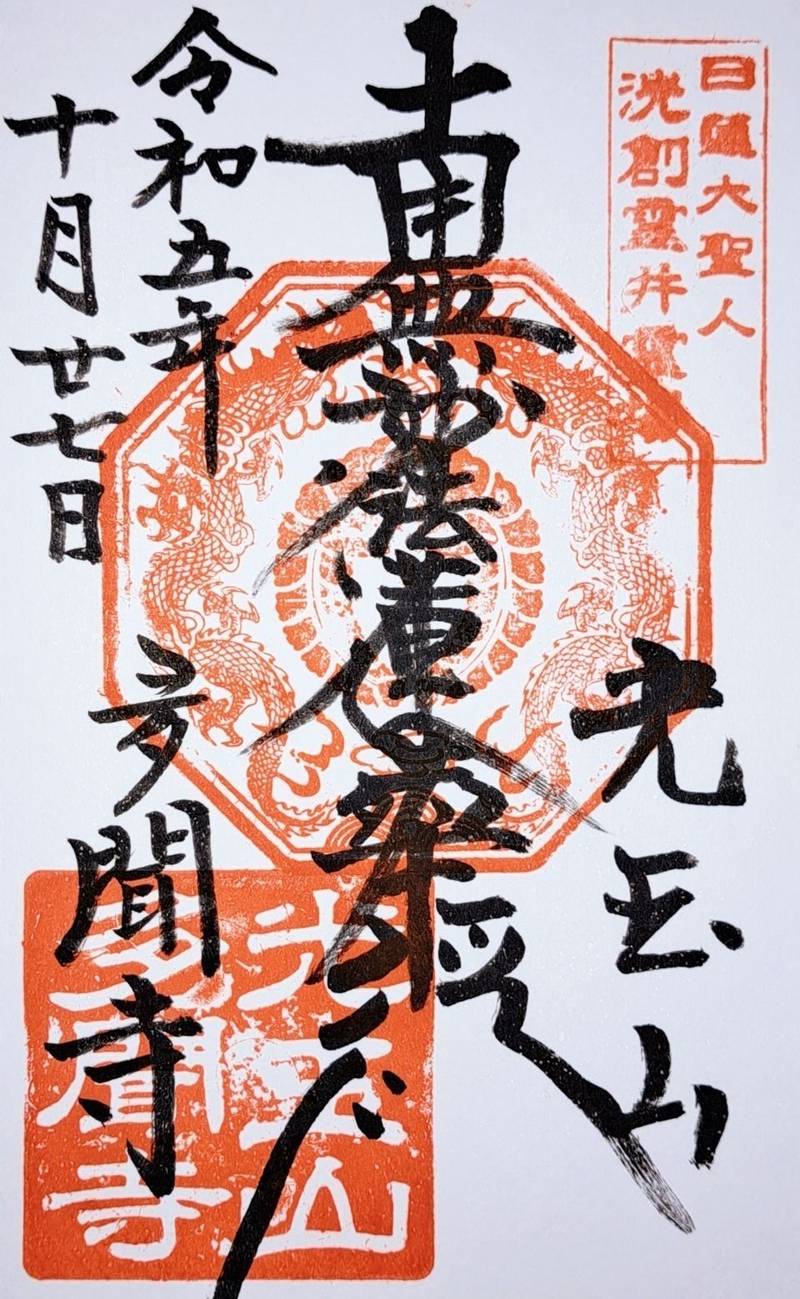 日蓮大聖人
洗創霊井
南無妙法蓮華経
光玉山
令和五年
十月廿七日
多聞寺
光玉山
多聞寺